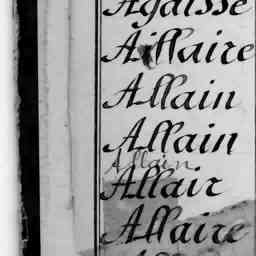 Agaisse
Aillaire
Allain
Allain
Allain
Allair
Allaire